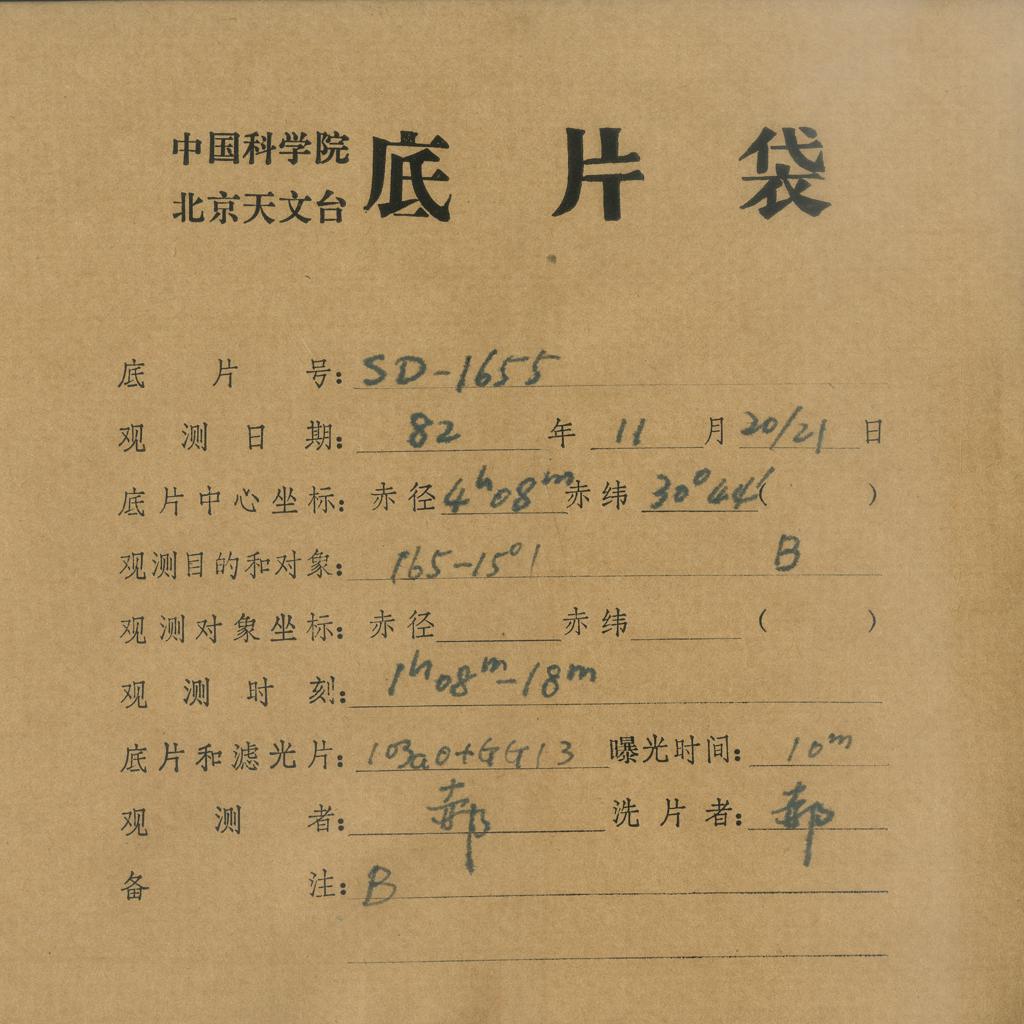 中国科学院
北京天文台
底片袋
底片号：SD-1655
观测日期：82年11月20/21日
底片中心坐标：赤径4ʰ08ᵐ赤纬30°44′（ ）
观测目的和对象：165-15°1 B
观测对象坐标：赤径 赤纬 （ ）
观测时刻：1ʰ08ᵐ-18ᵐ
底片和滤光片：103aO+GG13 曝光时间：10ᵐ
观测者：郝 洗片者：郝
备注：B